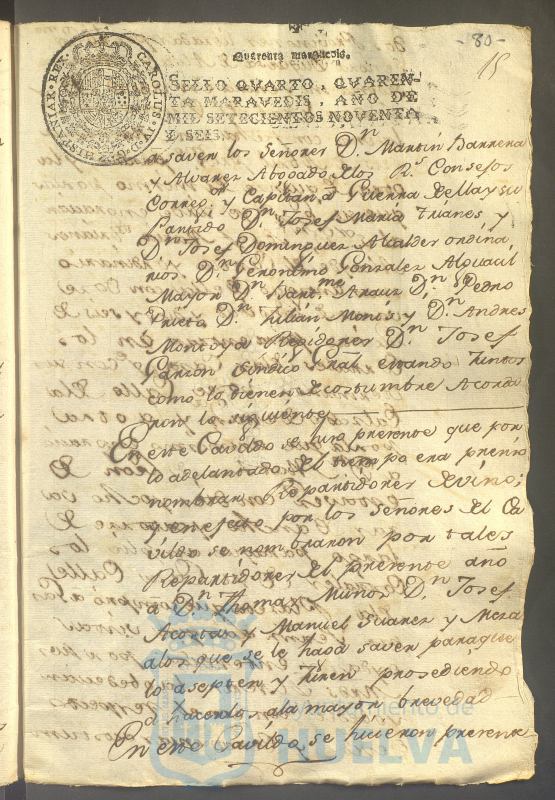 -80-
15
Quarenta maravedis.
CAROLUS IV D G HISPANIAR REX
SELLO QVARTO, QVAREN-
TA MARAVEDIS, AÑO DE
MIL SETECIENTOS NOVENTA
Y SEIS.
a saver los Señores Dn Martin Barrera
y Alvarez Abogado de los Rs Consejos
Correxor y Capitan a Guerra de
Partido Dn Josef Maria Trianes y
Dn Josef Dominguez Alcaldes ordina
rios Dn Geronimo Gonzalez Alguacil
Mayor Dn Bartme Arauz Dn Pedro
Prieto Dn Julian Montis y Dn Andres
Montiya Rexidores Dn Josef
Garzon Sindico Gral estando juntos
como lo tienen de costumbre Acorda
ron lo siguiente
En este Cavildo se hizo presente que por
lo adelantado del tiempo era preciso
nombrar Repartidores de vino;
y en efecto por los señores del Ca
vildo se nombraron por tales
Repartidores del presente año
a Dn Thomas Muños Dn Josef
Acosta y Manuel Suarez y Mora
a los que se le haga saver para que
lo asepten y juren prosediendo
hacerlos a la mayor brevedad
En este Cavildo se hicieron presente
Ayuntamiento de
HUELVA